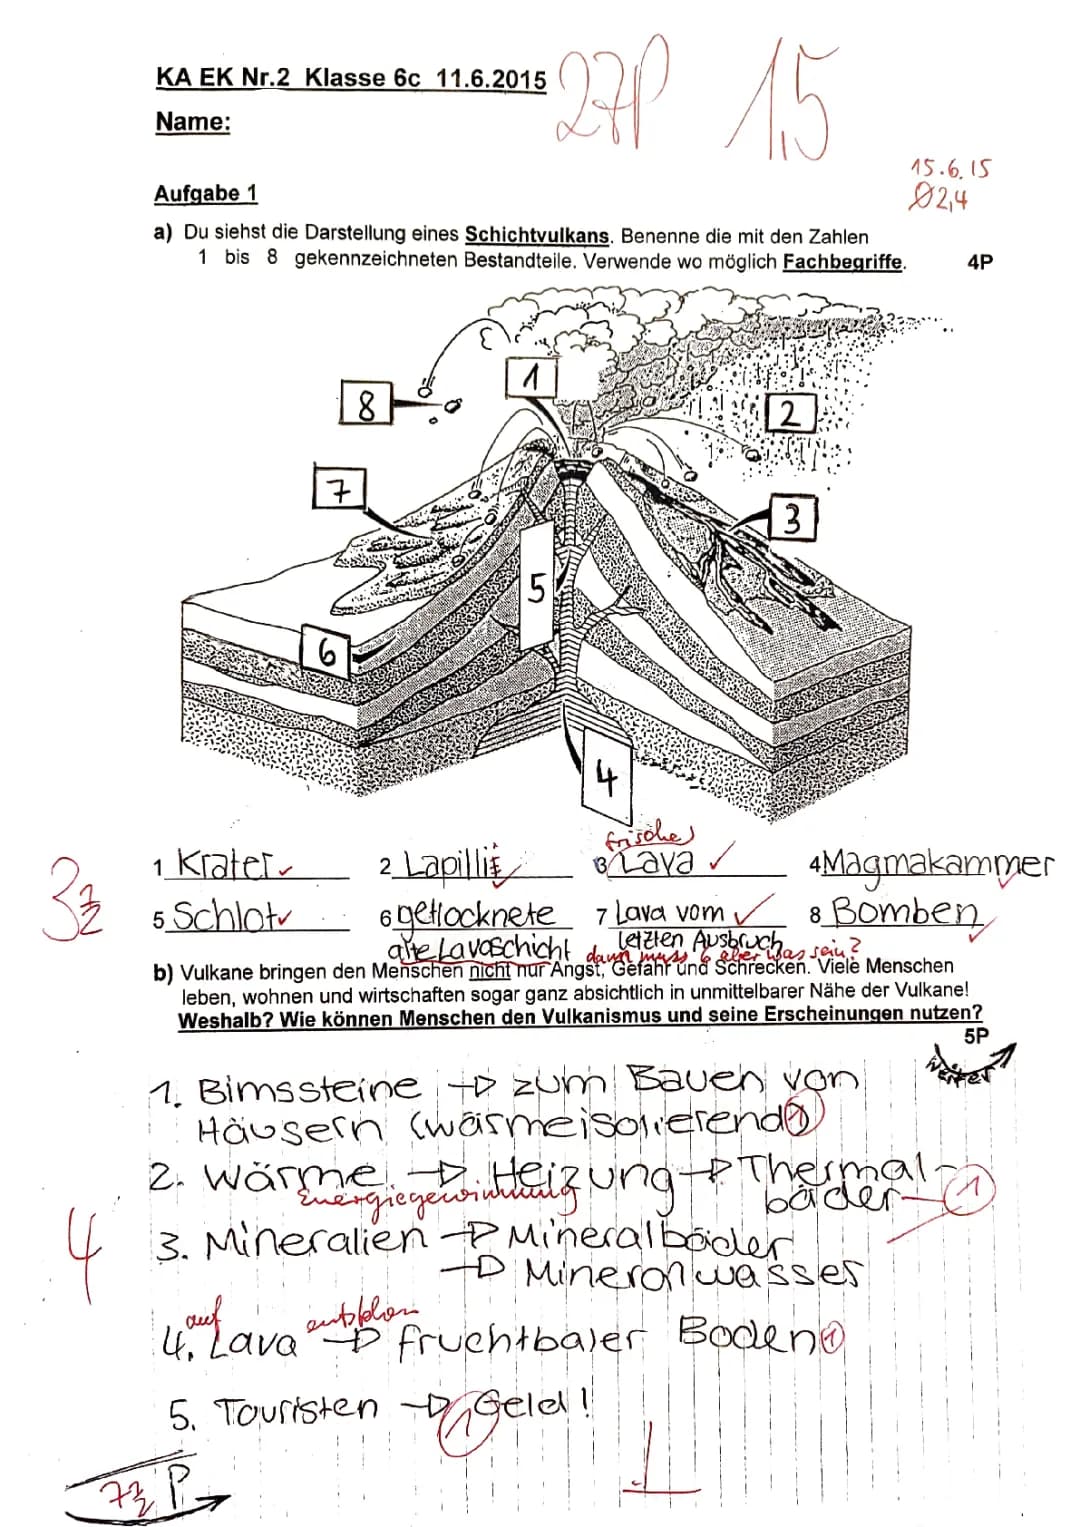 KA EK Nr.2 Klasse 6c 11.6.2015
27P 1,5
Name:
15.6.15
Ø2,4
Aufgabe 1
a) Du siehst die Darstellung eines Schichtvulkans. Benenne die mit den Zahlen
1 bis 8 gekennzeichneten Bestandteile. Verwende wo möglich Fachbegriffe. 4P
1
8
2
7
3
5
6
4
frische
1 Krater ✓ 2 Lapilli ✓ 3 Lava ✓ 4 Magmakammer ✓
3½
5 Schlot ✓ 6 getrocknete 7 Lava vom ✓ 8 Bomben ✓
alte Lavaschicht letzten Ausbruch
dann muss 6 aber was sein?
b) Vulkane bringen den Menschen nicht nur Angst, Gefahr und Schrecken. Viele Menschen
leben, wohnen und wirtschaften sogar ganz absichtlich in unmittelbarer Nähe der Vulkane!
Weshalb? Wie können Menschen den Vulkanismus und seine Erscheinungen nutzen?
5P
weiter
1. Bimssteine → zum Bauen von
Häusern (wärmeisolierend) 1
2. Wärme → Heizung → Thermal-
Energiegewinnung bäder 1
4
3. Mineralien → Mineralbäder
→ Mineralwasser
auf entstehen
4. Lava → fruchtbarer Boden 1
5. Touristen → Geld! 1
7½ P